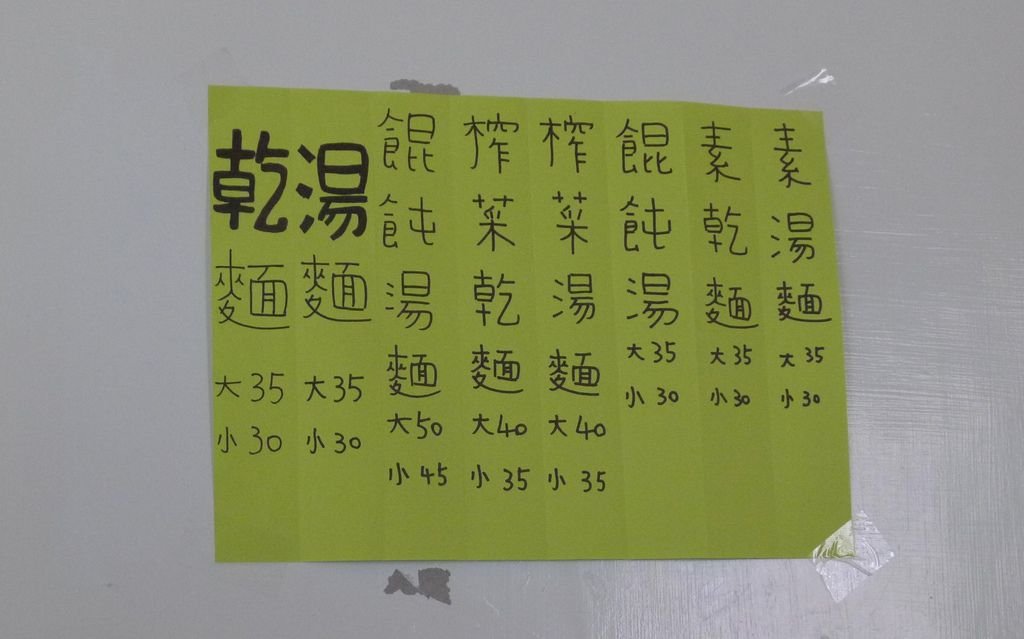 乾麵
大35
小30
湯麵
大35
小30
餛飩湯麵
大50
小45
榨菜乾麵
大40
小35
榨菜湯麵
大40
小35
餛飩湯
大35
小30
素乾麵
大35
小30
素湯麵
大35
小30